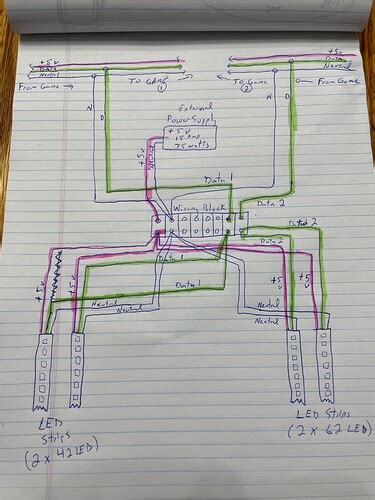 +5v
Data
Neutral
From Game
TO GAME
①
+5v
Data
Neutral
TO Game
②
From Game
N
D
N
D
External
Power Supply
+5v
15 Amp
75 watts
+5v
Neutral
Data 1
Data 2
Wiring Block
Data 2
Data 2
+5v
+5v
Data 1
Data 1
Neutral
Neutral
+5v
+5v
Neutral
Neutral
LED
Strips
(2 x 42 LED)
LED Strips
(2 x 62 LED)